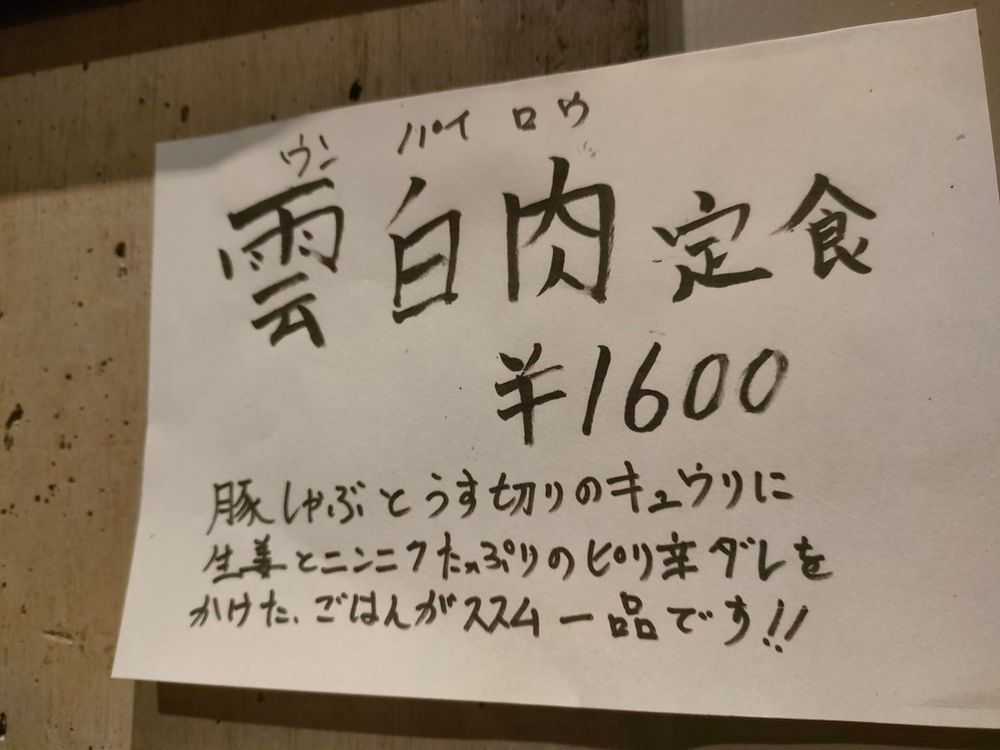 ウン パイ ロウ
雲白肉定食
¥1600
豚しゃぶとうす切りのキュウリに
生姜とニンニクたっぷりのピリ辛ダレを
かけた、ごはんがススム一品です!!